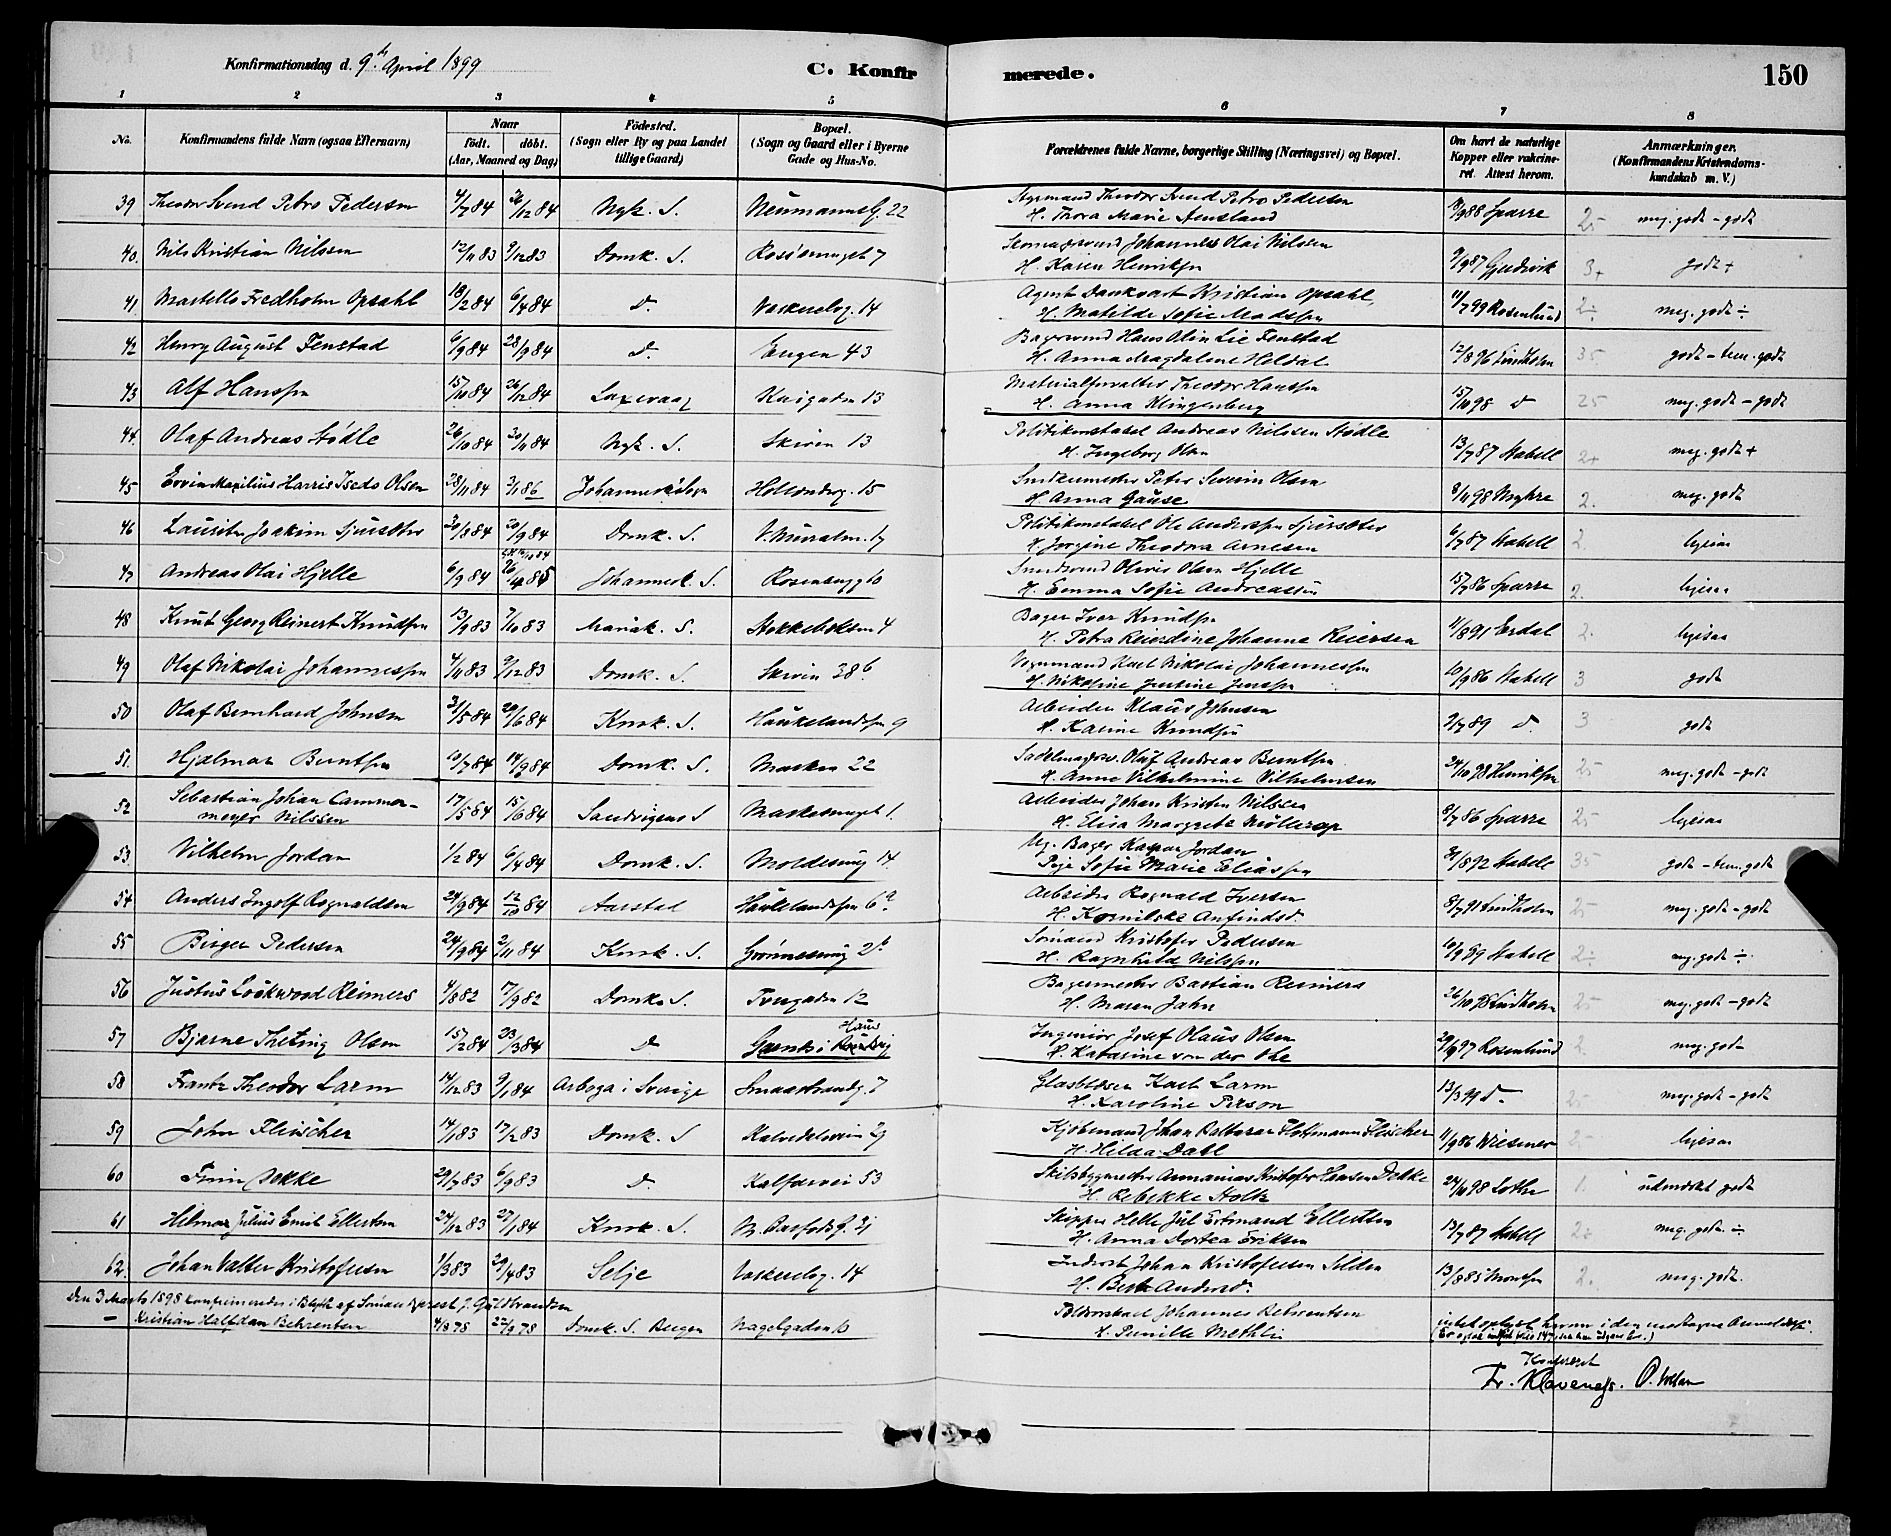 Konfirmationsdag d. 9de April 1899
C. Konfirmerede.
150
1 2 3 4 5 6 7 8
No.
Konfirmandens fulde Navn (ogsaa Efternavn)
Naar
født. døbt.
(Aar, Maaned og Dag)
Födested.
(Sogn eller By og paa Landet
tillige Gaard)
Bopæl.
(Sogn og Gaard eller i Byerne
Gade og Hus-No.
Forældrenes fulde Navne, borgerlige Stilling (Næringsvei) og Bopæl.
Om havt de naturlige
Kopper eller vakcine-
ret. Attest herom.
Anmærkninger.
(Konfirmandens Kristendoms-
kundskab m. V.)
39 Theodor Svend Petro Pedersen 4/7 84 26/12 84 Nyk. S. Neumannsg. 22
Styrmand Theodor Svend Petro Pedersen
H. Thora Marie 8/9 88 Sparre 25 meg. godt - godt
40. Nils Kristian Nilssen 12/11 83 9/12 83 Domk. S. 7
Johannes Olai Nilssen
H. Karen Henriksen 9/9 87 Gjedrvik 3+ godt +
41 Martello Fredholm Opsahl 18/2 84 6/4 84 D. Vaskerelvg. 14
Agent Dankvart Kristian Opsahl,
H. Matilde Sofie Madssen 11/7 99 Rosenlund 2÷ meg. godt ÷
42 Henry August Fenstad 6/9 84 28/9 84 D. Engen 43
Bagersvend Hans Olin Lie Fenstad
H. Anna Magdalene Heldal 12/8 96 Lindholm 35 godt - tem. godt
43 Alf Hanssen 15/10 84 26/12 84 Laxevaag Kaigaden 13
Materialforvalter Theodor Hanssen
H. Anna Klingenberg 15/10 98 D 25 meg. godt - godt
44. Olaf Andreas Stødle 26/10 84 30/11 84 Nyk. S. Skiven 13
Politikonstabel Andreas Nilssen Stødle
H. Ingeborg Olsen 13/7 87 Stabell 2+ meg. godt +
45 Ervin Maxilius Harris Olsen 28/11 84 3/1 86 JohanneskSogn Hollenderg. 15
Smedemester Peter Severin Olsen
H. Anna Gause 8/11 98 Myhre 2. meg. godt
46 Lauritz Joakim Sjursæter 30/8 84 20/9 84 Domk. S. V. Muralm. 17
Politikonstabel Ole Anderssen Sjursæter
H. Jorgine Theodora Arnesen 6/7 87 Stabell 2. ligesaa
47 Andreas Olai Hjelle 6/9 84 26/4 85 Johannesk. S. Rosenbergg 10
Smedsvend Oluvis Olsen Hjelle
H. Emma Sofie Andreassen 15/7 86 Sparre 2. ligesaa
48 Knut Georg Reinert Knudssen 13/9 83 7/10 83 Mariak. S. Stokkebaksm 4
Bager Iver Knudssen
H. Petra Reierdine Johanne Reiersen 11/8 91 Erdal 2. ligesaa
49 Olaf Nikolai Johannessen 4/11 83 9/12 83 Domk. S. Skiven 38 b
Vognmand Karl Nikolai Johannessen
H. Nikoline Justine Jenssen 10/9 86 Stabell 3 godt
50 Olaf Bernhard Johnsen 31/5 84 29/6 84 Korsk. S. Haukelandsvn 9
Arbeider Klaus Johnsen
H. Karine Knudsen 2/7 89 D. 3 godt
51. Hjalmar Berntsen 10/7 84 14/9 84 Domk. S. Marken 22
Sadelmagersv. Oluf Andreas Berntsen
H. Anne Vilhelmine Vilhelmsen 24/10 98 Henriksen 25 meg. godt - godt
52 Sebastian Johan Cammer-
meyer Nilssen 17/5 84 15/6 84 Sandvigens S Markesmuget 1.
Arbeider Johan Kristen Nilssen
H. Elisa Margrete Møllerop 8/7 86 Sparre 25 ligesaa
53. Vilhelm Jordan 1/2 84 6/4 84 Domk. S. Moldesmug 14.
Ug. Bager Kaspar Jordan
Pige Sofie Marie Eliassen 31/8 92 Stabell 35 godt - tem. godt
54 Anders Ingolf Ragnaldsen 24/9 84 12/10 84 Aarstad Haukelandsvn 6a
Arbeider Ragnald Iversen
H. Anfindsd. 8/7 91 Lindholm 25 meg. godt - godt
55 Birger Pedersen 24/9 84 2/11 84 Korsk. S. Grønnesmug 2b
Sømand Kristofer Pedersen
H. Ragnhild Nilssen 10/9 89 Stabell 2÷ meg. godt ÷
56 Justus Lockwood Reimers 4/8 82 17/9 82 Domk. S. Torvgaden 12
Bagermester Bastian Reimers
H. Maren Jahn 26/10 98 Lindholm 25 meg. godt - godt
57 Bjarne Theting Olsen 15/2 84 23/3 84 D Garnæs i Haus
Ingeniør Josef Olaus Olsen
H. Katarine von der Ohe 29/9 97 Rosenlund 2 meg. godt
58 Frantz Theodor Larm 14/12 83 9/1 84 Arboga i Sverige Smaastrandg. 7
Glasblæser Karl Larm
H. Karoline Person 13/3 99 D. 25 meg. godt - godt
59 John Fleischer 14/1 83 17/2 83 Domk. S Kalvedalsvein 29
Kjøbmand Johan Baltazar Flottmann Fleischer
H. Hilda Dahl 11/9 86 Wiesener 2- ligesaa
60 Finn Dekke 29/7 83 6/9 83 D. Kalfarvei 53
Skibsbygmester Annanias Kristofer Hansen Dekke
H. Rebekke Stoltz 24/10 98 Lothe 1. udmærket godt
61 Helmer Julius Emil Ellertsen 24/12 83 27/1 84 Korsk. S. N. Parfods G. 21
Skipper Helle Jul Ertmand Ellertsen
H. Anna Dortea Eriksen 13/7 87 Stabell 2÷ meg. godt ÷
62. Johan Valter Kristofersen 1/3 83 29/4 83 Selje Vaskerelvg. 14
Johan Kristofersen Selden
H. Berte Andersd. 13/8 85 Monssen 2. meg. godt.
Den 3 Marts 1898 konfirmeredes i Blyth af Sømandsprest J. Guldbrandsen
— Kristian Halfdan Behrentsen 4/8 78 22/9 78 Domk. S. Bergen Nagelgaden 13
Toldopsynsm. Johannes Behrentsen
H. Pernille Methlie intet oplyst herom i den modtagne Anmeldelse.
Konfereret
Fr. Klaveness.